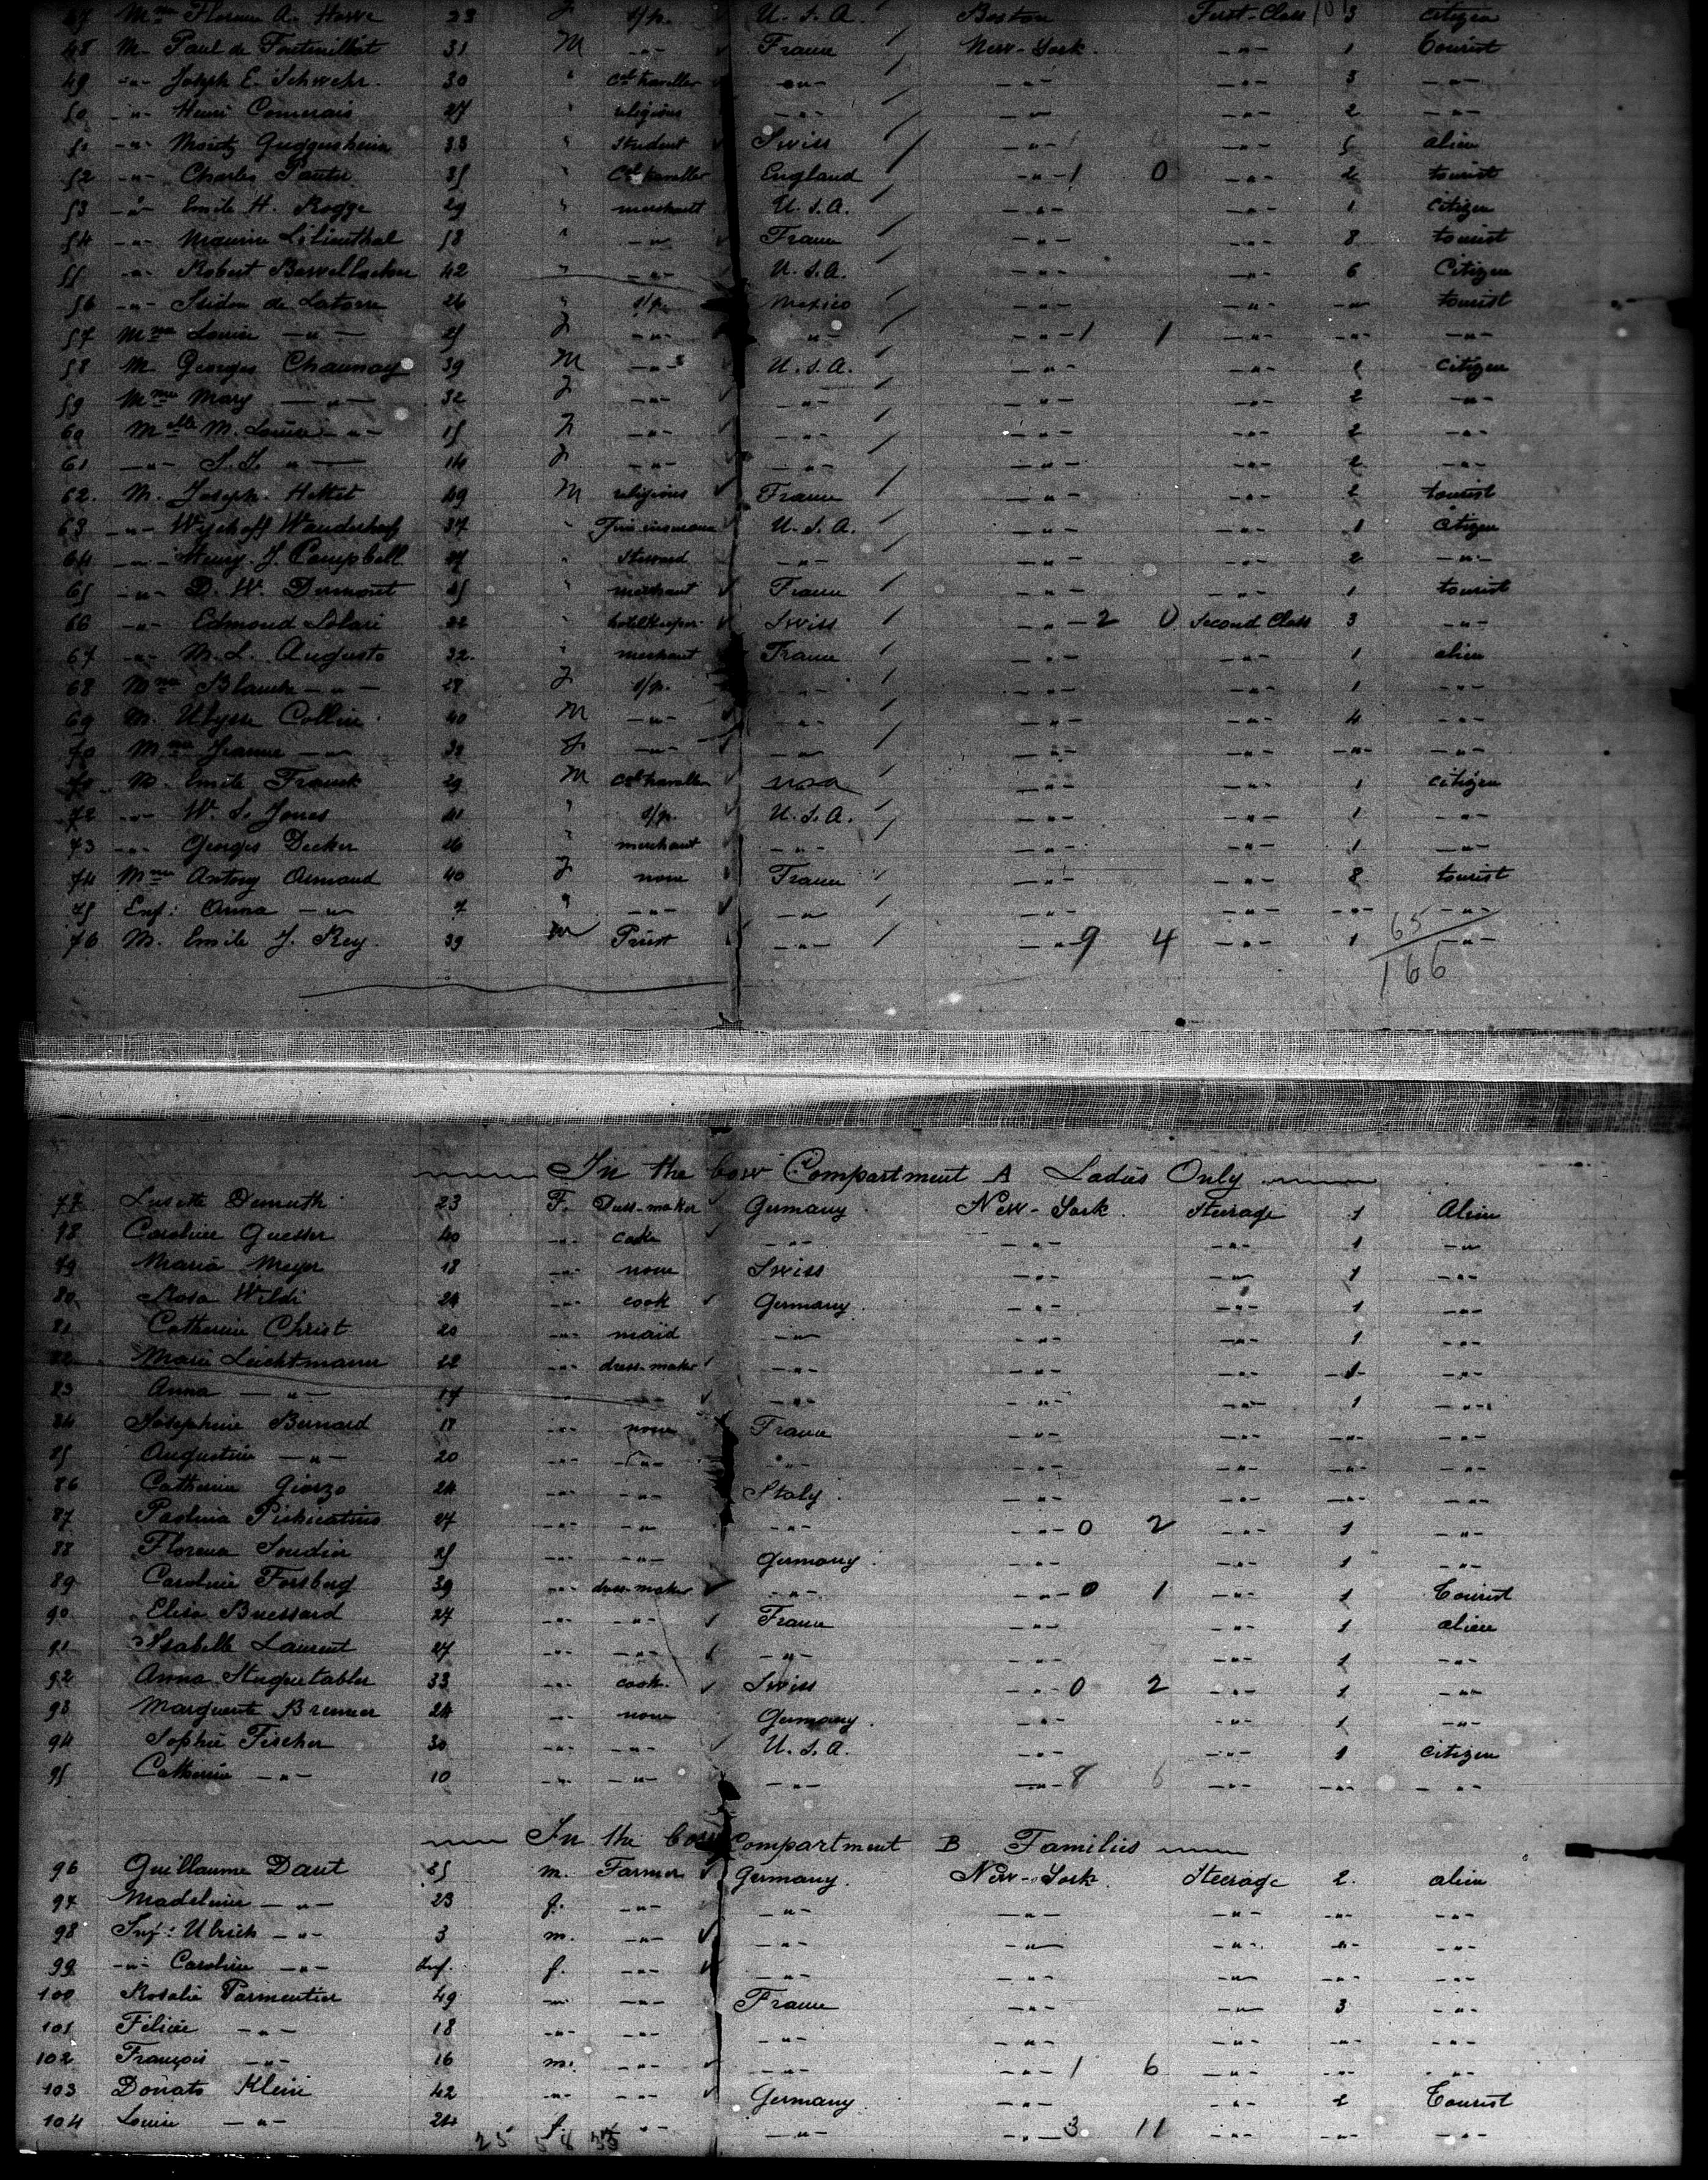 47 Mme Florence A. Howe 23 F s/p. U. S. A. Boston First-Class 3 citizen
48 M. Paul de 31 M -"- France New-York. -"- 1 Tourist
49 -"- Joseph E. Schwehr. 30 " traveller -"- -"- -"- 3 -"-
50 -"- Henri 47 " religious -"- -"- -"- 2 -"-
51 -"- Moritz Guggenheim 33 " Student Swiss -"- -"- 5 alien
52 -"- Charles 35 " traveller England -"- 1 0 -"- 2 tourist
53 -"- Emile H. Rogge 29 " merchant U. S. A. -"- -"- 1 citizen
54 -"- Maurice Lilienthal 58 " -"- France -"- -"- 8 tourist
55 -"- Robert 42 " -"- U. S. A. -"- -"- 6 Citizen
56 -"- de Latorre 26 " s/p. Mexico -"- -"- -"- tourist
57 Mme Louise -"- 25 F -"- -"- -"- 1 1 -"- -"- -"-
58 M. Georges Chaunay 39 M -"- U. S. A. -"- -"- citizen
59 Mme Mary -"- 32 F -"- -"- -"- -"- 2 -"-
60 Melle M. Louise -"- 15 F -"- -"- -"- -"- 2 -"-
61 -"- -"- 14 F -"- -"- -"- -"- 2 -"-
62. M. Joseph 49 M religious France -"- -"- 2 tourist
63 -"- Wyckoff Vanderhoef 37 " U. S. A. -"- -"- 1 Citizen
64 -"- Henry J. Campbell " Steward -"- -"- -"- 2 -"-
65 -"- D. W. Dermont 45 " merchant France -"- -"- 1 tourist
66 -"- Edmond 22 " hotelkeeper Swiss -"- 2 0 Second Class 3 -"-
67 -"- M. L. Augusto 32. " merchant France -"- -"- 1 alien
68 Mme Blanche -"- 28 F s/p. -"- -"- -"- 1 -"-
69 M. Ulysse Collin. 40 M -"- -"- -"- -"- 4 -"-
70 Mme Jeanne -"- 32 F -"- -"- -"- -"- -"- -"-
71 M. Emile Franck 29 M traveller usa -"- -"- 1 citizen
72 -"- W. S. Jones 41 " s/p. U. S. A. -"- -"- 1 -"-
73 -"- Georges Decker 46 " merchant -"- -"- -"- 1 -"-
74 Mme Antony Armand 40 F none France -"- -"- 8 tourist
75 Enf: Anna -"- 7 " -"- -"- -"- -"- -"- -"-
76 M. Emile J. Rey. 39 M Priest -"- -"- 9 4 -"- 1 -"-
65
166
In the bow Compartment A Ladies Only
77 Demuth 23 F. Dress-maker Germany. New-York. Steerage 1 Alien
78 Caroline Guesser 40 -"- cook -"- -"- -"- 1 -"-
79 Maria Meyer 18 -"- none Swiss -"- -"- 1 -"-
80. Rosa Wildi 24 -"- cook Germany. -"- -"- 1 -"-
81 Catherine Christ 20 -"- maid -"- -"- -"- 1 -"-
82 Marie Leichtmann 22 -"- dress-maker -"- -"- -"- 1 -"-
83 Anna -"- 17 -"- -"- -"- -"- -"- 1 -"-
84 Josephine Bernard 18 -"- none France -"- -"- -"- -"-
85 Augustine -"- 20 -"- -"- -"- -"- -"- -"- -"-
86 Catherine Giorzo 24 -"- -"- Italy. -"- -"- -"- -"-
87 Paolina 27 -"- -"- -"- -"- 0 2 -"- 1 -"-
88 Florena 25 -"- -"- Germany. -"- -"- 1 -"-
89 Caroline Forsberg 39 -"- dress-maker -"- -"- 0 1 -"- 1 Tourist
90 Elisa Buessard 27 -"- -"- France -"- -"- 1 alien
91 Isabelle Laurent 27 -"- -"- -"- -"- -"- 1 -"-
92 Anna 33 -"- cook. Swiss -"- 0 2 -"- 1 -"-
93 Marguerite Brenner 24 -"- none Germany. -"- -"- 1 -"-
94 Sophie Fischer 30 -"- -"- U. S. A. -"- -"- 1 citizen
95 Catherine -"- 10 -"- -"- -"- -"- 8 6 -"- -"- -"-
In the bow Compartment B Families
96 Guillaume Daut 25 m. Farmer Germany. New-York. Steerage 2. alien
97 Madeleine -"- 23 f. -"- -"- -"- -"- -"- -"-
98 Inf: Ulrich -"- 3 m. -"- -"- -"- -"- -"- -"-
99 -"- Caroline -"- Inf. f. -"- -"- -"- -"- -"- -"-
100 Rosalie Parmentier 49 -"- -"- France -"- -"- 3 -"-
101 Félicie -"- 18 -"- -"- -"- -"- -"- -"- -"-
102 François -"- 16 m. -"- -"- -"- 1 6 -"- -"- -"-
103 Donato Klein 42 -"- -"- Germany. -"- -"- 2 Tourist
104 Louise -"- 24 f. -"- -"- -"- 3 11 -"- -"- -"-
25 58